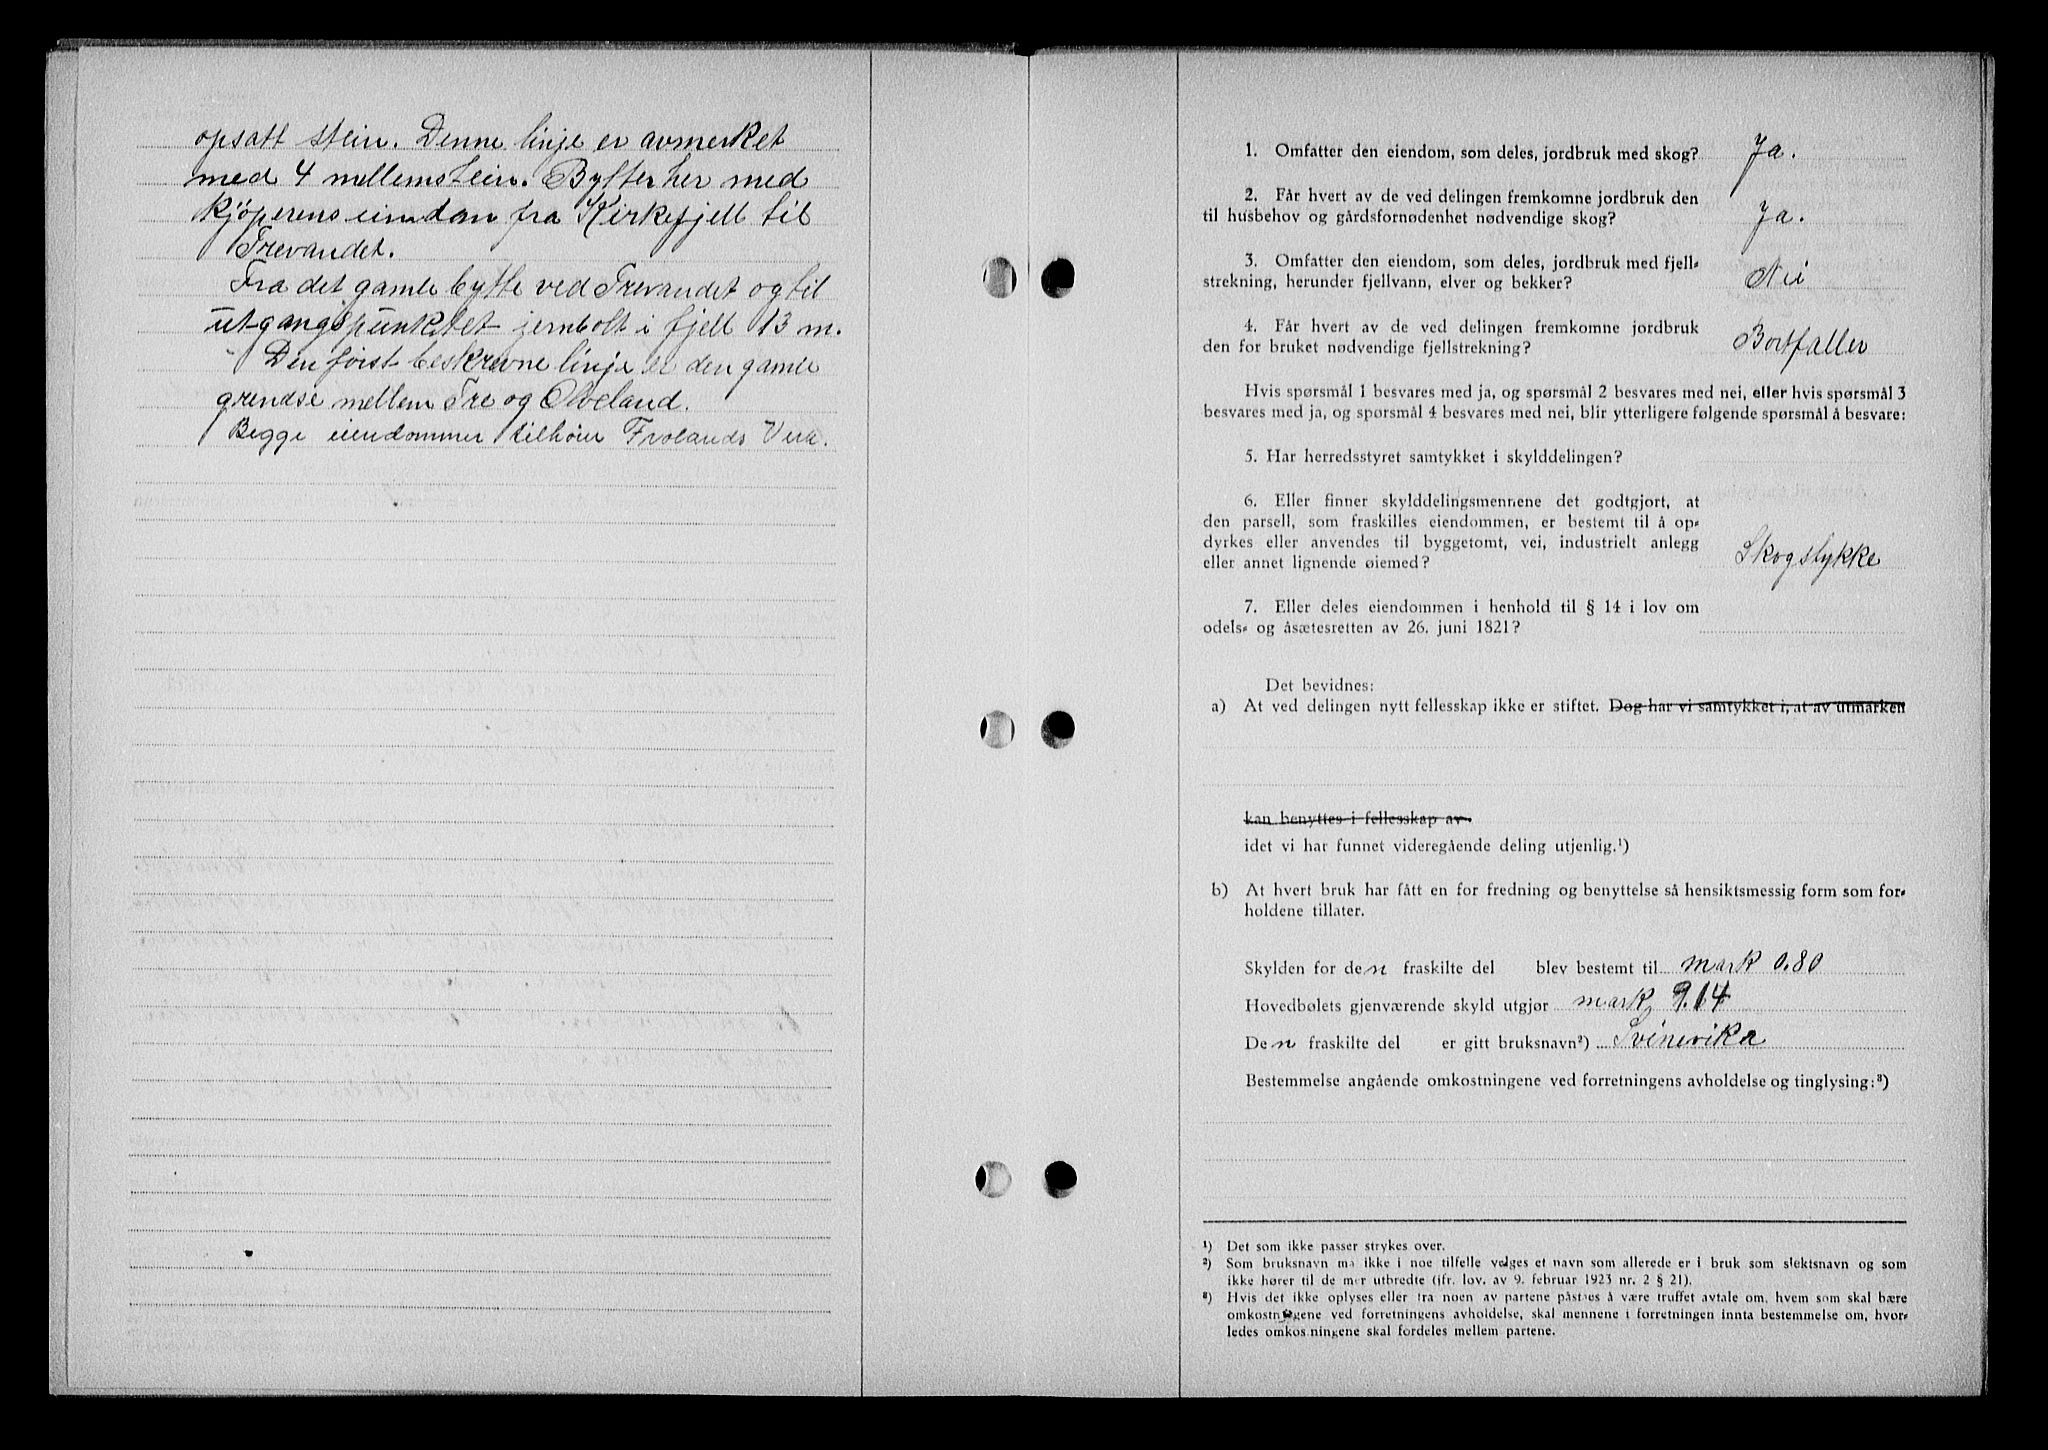 opsatt stein. Denne linje er avmerket
med 4 mellemstein. Bytter her med
kjøperens eiendom fra Kirkefjell til
Trevandet.
Fra det gamle bytte ved Trevandet og til
utgangspunktet jernbolt i fjell 13 m.
Den først beskrevne linje er den gamle
grendse mellem Tre og Olveland.
Begge eiendommer tilhøier Frolands Verk.
1. Omfatter den eiendom, som deles, jordbruk med skog? Ja.
2. Får hvert av de ved delingen fremkomne jordbruk den
til husbehov og gårdsfornødenhet nødvendige skog? Ja.
3. Omfatter den eiendom, som deles, jordbruk med fjell-
strekning, herunder fjellvann, elver og bekker? Nei
4. Får hvert av de ved delingen fremkomne jordbruk
den for bruket nødvendige fjellstrekning? Bortfaller
Hvis spørsmål 1 besvares med ja, og spørsmål 2 besvares med nei, eller hvis spørsmål 3
besvares med ja, og spørsmål 4 besvares med nei, blir ytterligere følgende spørsmål å besvare:
5. Har herredsstyret samtykket i skylddelingen?
6. Eller finner skylddelingsmennene det godtgjort, at
den parsell, som fraskilles eiendommen, er bestemt til å op-
dyrkes eller anvendes til byggetomt, vei, industrielt anlegg
eller annet lignende øiemed? Skogstykke
7. Eller deles eiendommen i henhold til § 14 i lov om
odels- og åsætesretten av 26. juni 1821?
Det bevidnes:
a) At ved delingen nytt fellesskap ikke er stiftet. Dog har vi samtykket i, at av utmarken
kan benyttes i fellesskap av
idet vi har funnet videregående deling utjenlig.¹)
b) At hvert bruk har fått en for fredning og benyttelse så hensiktsmessig form som for-
holdene tillater.
Skylden for den fraskilte del blev bestemt til mark 0.80
Hovedbølets gjenværende skyld utgjør mark 9.14
Den fraskilte del er gitt bruksnavn²) Svinevika
Bestemmelse angående omkostningene ved forretningens avholdelse og tinglysing:³)
¹) Det som ikke passer strykes over.
²) Som bruksnavn ma ikke i noe tilfelle velges et navn som allerede er i bruk som slektsnavn og som
ikke hører til de mer utbredte (jfr. lov. av 9. februar 1923 nr. 2 § 21).
³) Hvis det ikke oplyses eller fra noen av partene påstaes å være truffet avtale om, hvem som skal bære
omkostningene ved forretningens avholdelse, skal mennene i forretningen innta bestemmelse om, hvor-
ledes omkostningene skal fordeles mellem partene.